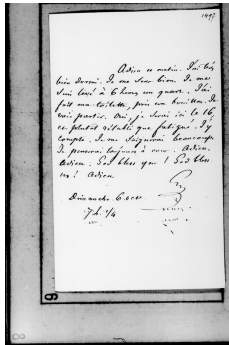 1497
Adieu ce matin. J'ai très
bien dormi. Je me sens bien. Je me
suis levé à 6 heures un quart. J'ai
fait ma toilette, pris un bouillon. Je
vais partir. Oui, je serai ici le 16,
et plutôt rétabli que fatigué. J'y
compte. Je me soignerai beaucoup.
Je penserai toujours à vous. Adieu.
Adieu. God bless you ! God bless
us ! Adieu.
Dimanche 6 oct.
7 h. 1/4
9